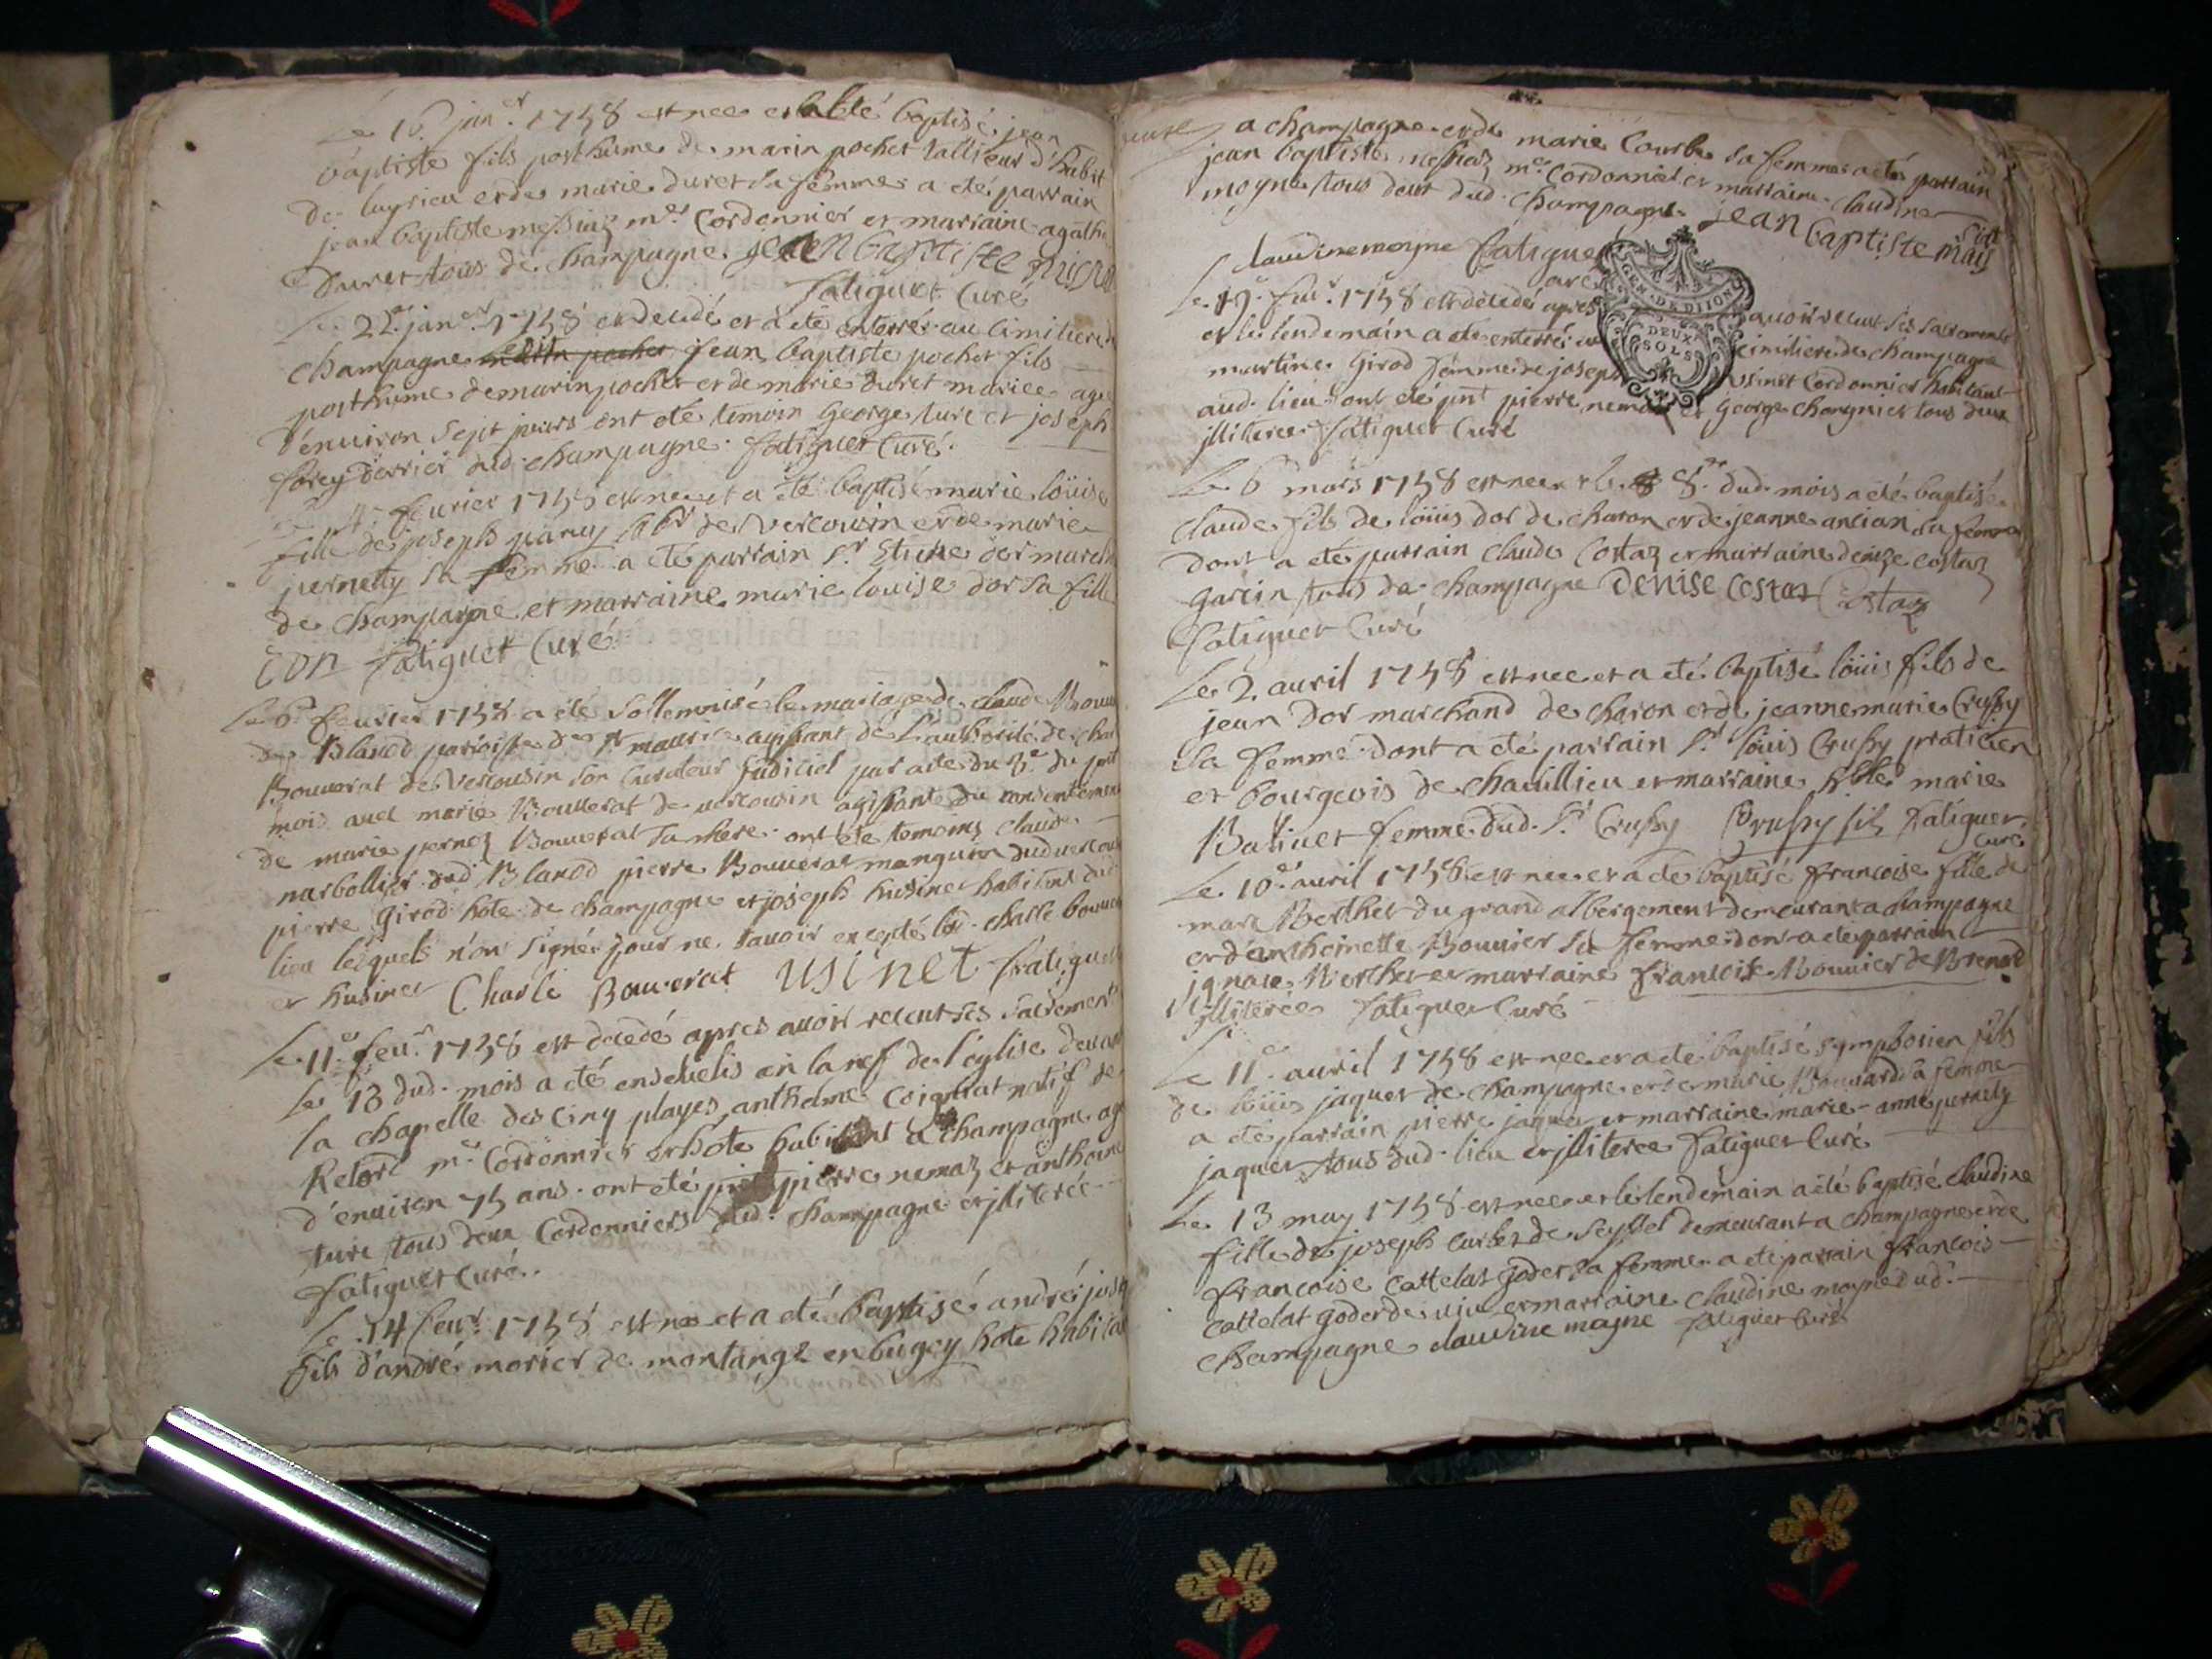 Le 16 jan.er 1758 est nee et a été baptisé jean
baptiste fils posthume de marin pochet tallieur d'habit
de luyrieu et de marie duret sa femme a eté parrain
jean baptiste messiaz m.e Cordonnier et marraine agathe
Duret tous de champagne. jean baptiste
fatiguet Curé
Le 22.e jan.er 1758 est decedé et a eté enterré au cimitiere de
champagne jean baptiste pochet fils
posthume de marin pochet et de marie duret mariee agé
d'enuiron sept jours ont eté temoin george ture et joseph
forey verrier dud. champagne. fatiguet Curé.
feurier 1758 est nee et a eté baptisé marie loüise
fille de joseph de vercousin et de marie
pernetty sa femme a eté parrain S.r Etiene dor march
de champagne et marraine marie louise dor sa fille
Don fatiguet Curé
Le 6 feurier 1758 a eté sollemnisé le mariage de claude
de Blanod paroisse de S.t maurice agissant de l'authorité de char
Bouuerat de Vercousin son Curateur judiciel par acte du 3.e du pnt
mois auec marie Bouuerat de uercousin agissante du consentement
de marie pernoz Bouuerat sa mere. ont eté temoins claude
narbollier dud. Blanod pierre Bouuerat manguin dud uercou
pierre girod hote de champagne et joseph husinet habitant dud
lieu lesquels n'on signé pour ne sauoir excepté led. charle bouue
et husinet Charle Bouverat Usinet fatiguet
Le 11.e feu.r 1758 est decedé apres auoir receut ses sacrements
Le 13 dud. mois a eté enseuelis en la nef de l'église deuant
la chapelle des cinq playes anthelme coignat natif de
Retord m.e Cordonnier et hote habitant a champagne agé
d'enuiron 75 ans. ont eté pnt pierre nemoz et anthoine
ture tous deux Cordonniers dud. champagne et jlliterée
fatiguet Curé.
Le 14 feur. 1758 est né et a eté baptisé andré jos
fils d'andré morier de montange en bugey hote habitan
a champagne et de marie Courbe sa femme a eté parrain
jean baptiste messiaz m.e Cordonnier et marraine claudine
moyne tous deux dud. champagne. jean baptiste
claudine moyne fatiguet
GEN. DE DIJON
DEUX
SOLS
Le 19.e feu.r 1758 est decedé apres auoir receut ses sacrements
et le lendemain a eté enterré au cimitiere de champagne
martine girod femme de joseph usinet Cordonnier habitant
aud. lieu ont eté pnt pierre nemoz et george chongnier tous deux
jlliterée fatiguet Curé
Le 6 mars 1758 est nee et le 8.e dud. mois a eté baptisé
claude fils de loüis dor de charon et de jeanne ancian sa femme
dont a eté parrain claude Costaz et marraine denize costaz
garcin tous de champagne Denise Costaz Costaz
fatiguet Curé
Le 2 auril 1758 est nee et a eté baptisé loüis fils de
jean Dor marchand de charon et de jeanne marie Crussy
sa femme dont a eté parrain S.r loüis Crussy praticien
et bourgeois de chauillieu et marraine marie
Batinet femme dud. S.r Crussy Crussy fatiguet
Curé
Le 10.e auril 1758 est nee et a eté baptisé francoise fille de
marc Berthet du grand albergement demeurant a champagne
et d'anthoinette Bouuier sa femme dont a eté parrain
ignace Berthet et marraine francoise Bouuier de Brenod
jlliterée fatiguet Curé
Le 11.e auril 1758 est nee et a eté baptisé symphorien fils
de loüis jaquet de champagne et de marie Bouuard sa femme
a eté parrain pierre jaquet et marraine marie-anne pernety
jaquet tous dud. lieu et jlliterée fatiguet Curé
Le 13 may 1758 est nee et le lendemain a eté baptisé claudine
fille de joseph Curtet de Seyssel demeurant a champagne et de
francoise cattelat goder sa femme a eté parrain francois
cattelat goder de uiu et marraine claudine moyne dud.
champagne claudine moyne fatiguet Curé